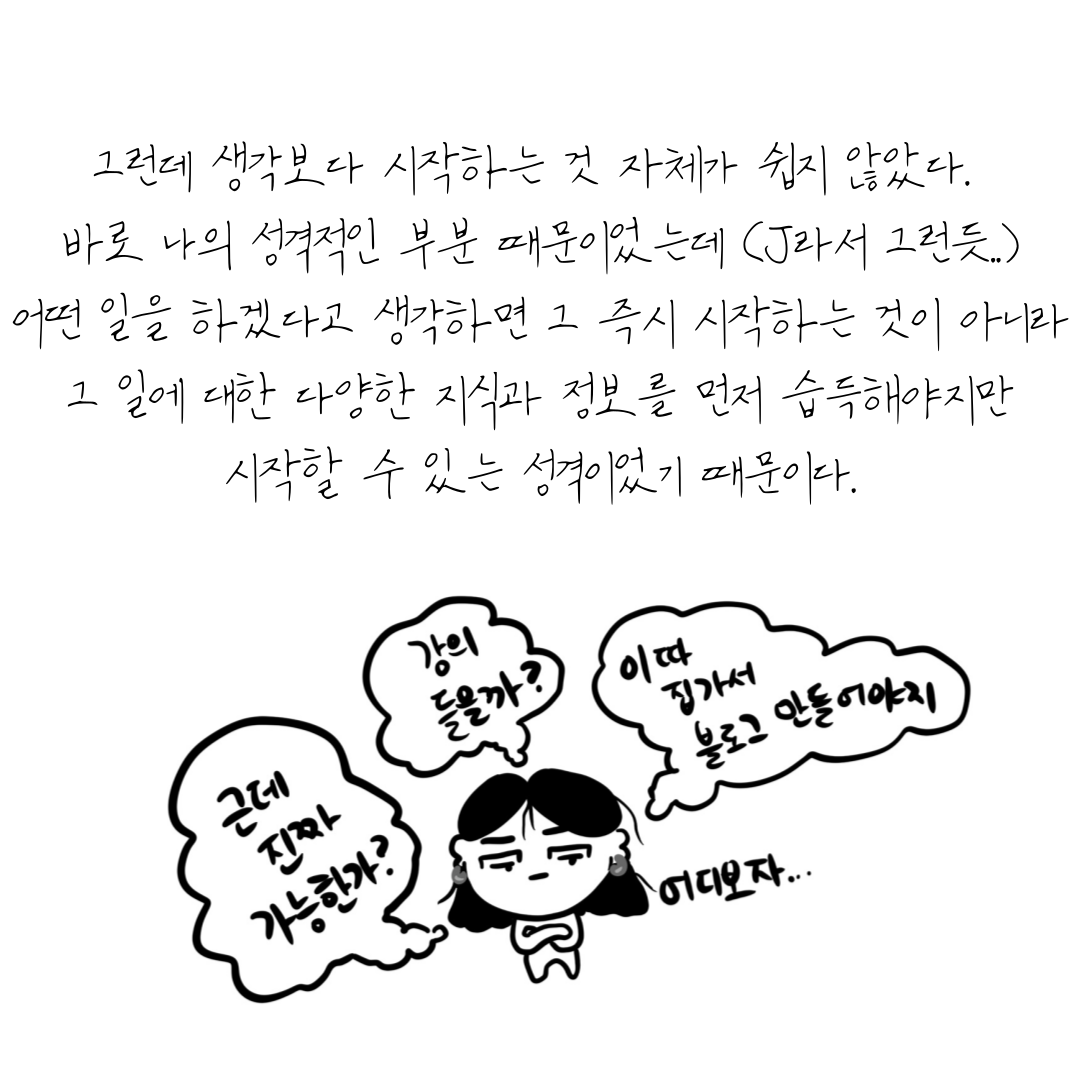 그런데 생각보다 시작하는 것 자체가 쉽지 않았다.
바로 나의 성격적인 부분 때문이었는데 (J라서 그런듯..)
어떤 일을 하겠다고 생각하면 그 즉시 시작하는 것이 아니라
그 일에 대한 다양한 지식과 정보를 먼저 습득해야지만
시작할 수 있는 성격이었기 때문이다.
강의
들을까?
이따
집가서
블로그 만들어야지
근데
진짜
가능한가?
어디보자...